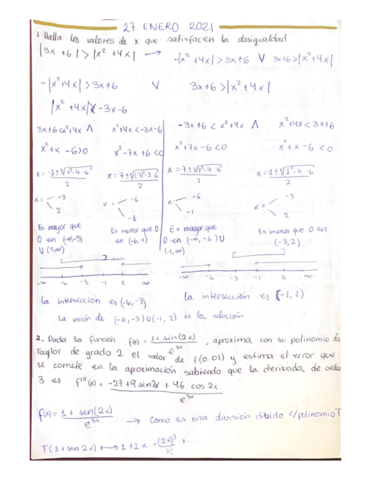 27 ENERO 2021
1. Halla los valores de x que satisfacen la desigualdad
|3x+6| > |x²+4x| ⟶ -|x²+4x| > 3x+6 V 3x+6 > |x²+4x|
-|x²+4x| > 3x+6 V 3x+6 > |x²+4x|
|x²+4x| < -3x-6
3x+6 < x²+4x Λ x²+4x < -3x-6 -3x-6 < x²+4x Λ x²+4x < 3x+6
x²+x-6 > 0 x²+7x+6 < 0 x²+7x+6 x²+x-6 < 0
-3 -6 -6 -3
2 -1 -1 2
Es mayor que Es menor que 0 Es mayor que Es menor que 0 en
0 en (-∞,-3) en (-6,-1) 0 en (-∞,-6) U (-3,2)
U (2,∞) (-1,∞)
-∞ -6 -3 -1 2 ∞ -∞ -6 -3 -1 2 ∞
la intersección es (-6,-3) la intersección es (-1,2)
La unión de (-6,-3) U (-1,2) es la solución
2. Dada la función f(x) = (1+sin(2x))/e³ˣ, aproxima con su polinomio de
Taylor de grado 2 el valor de f(0.01) y estima el error que
se comete en la aproximación sabiendo que la derivada de orden
3 es f'''(x) = (-27+9 sin 2x + 46 cos 2x)/e³ˣ
f(x) = (1+sen(2x))/e³ˣ → Como es una división divido c/polinomio T
T(1+sen 2x) ⟼ 1+2x - (2x)³/3! ...